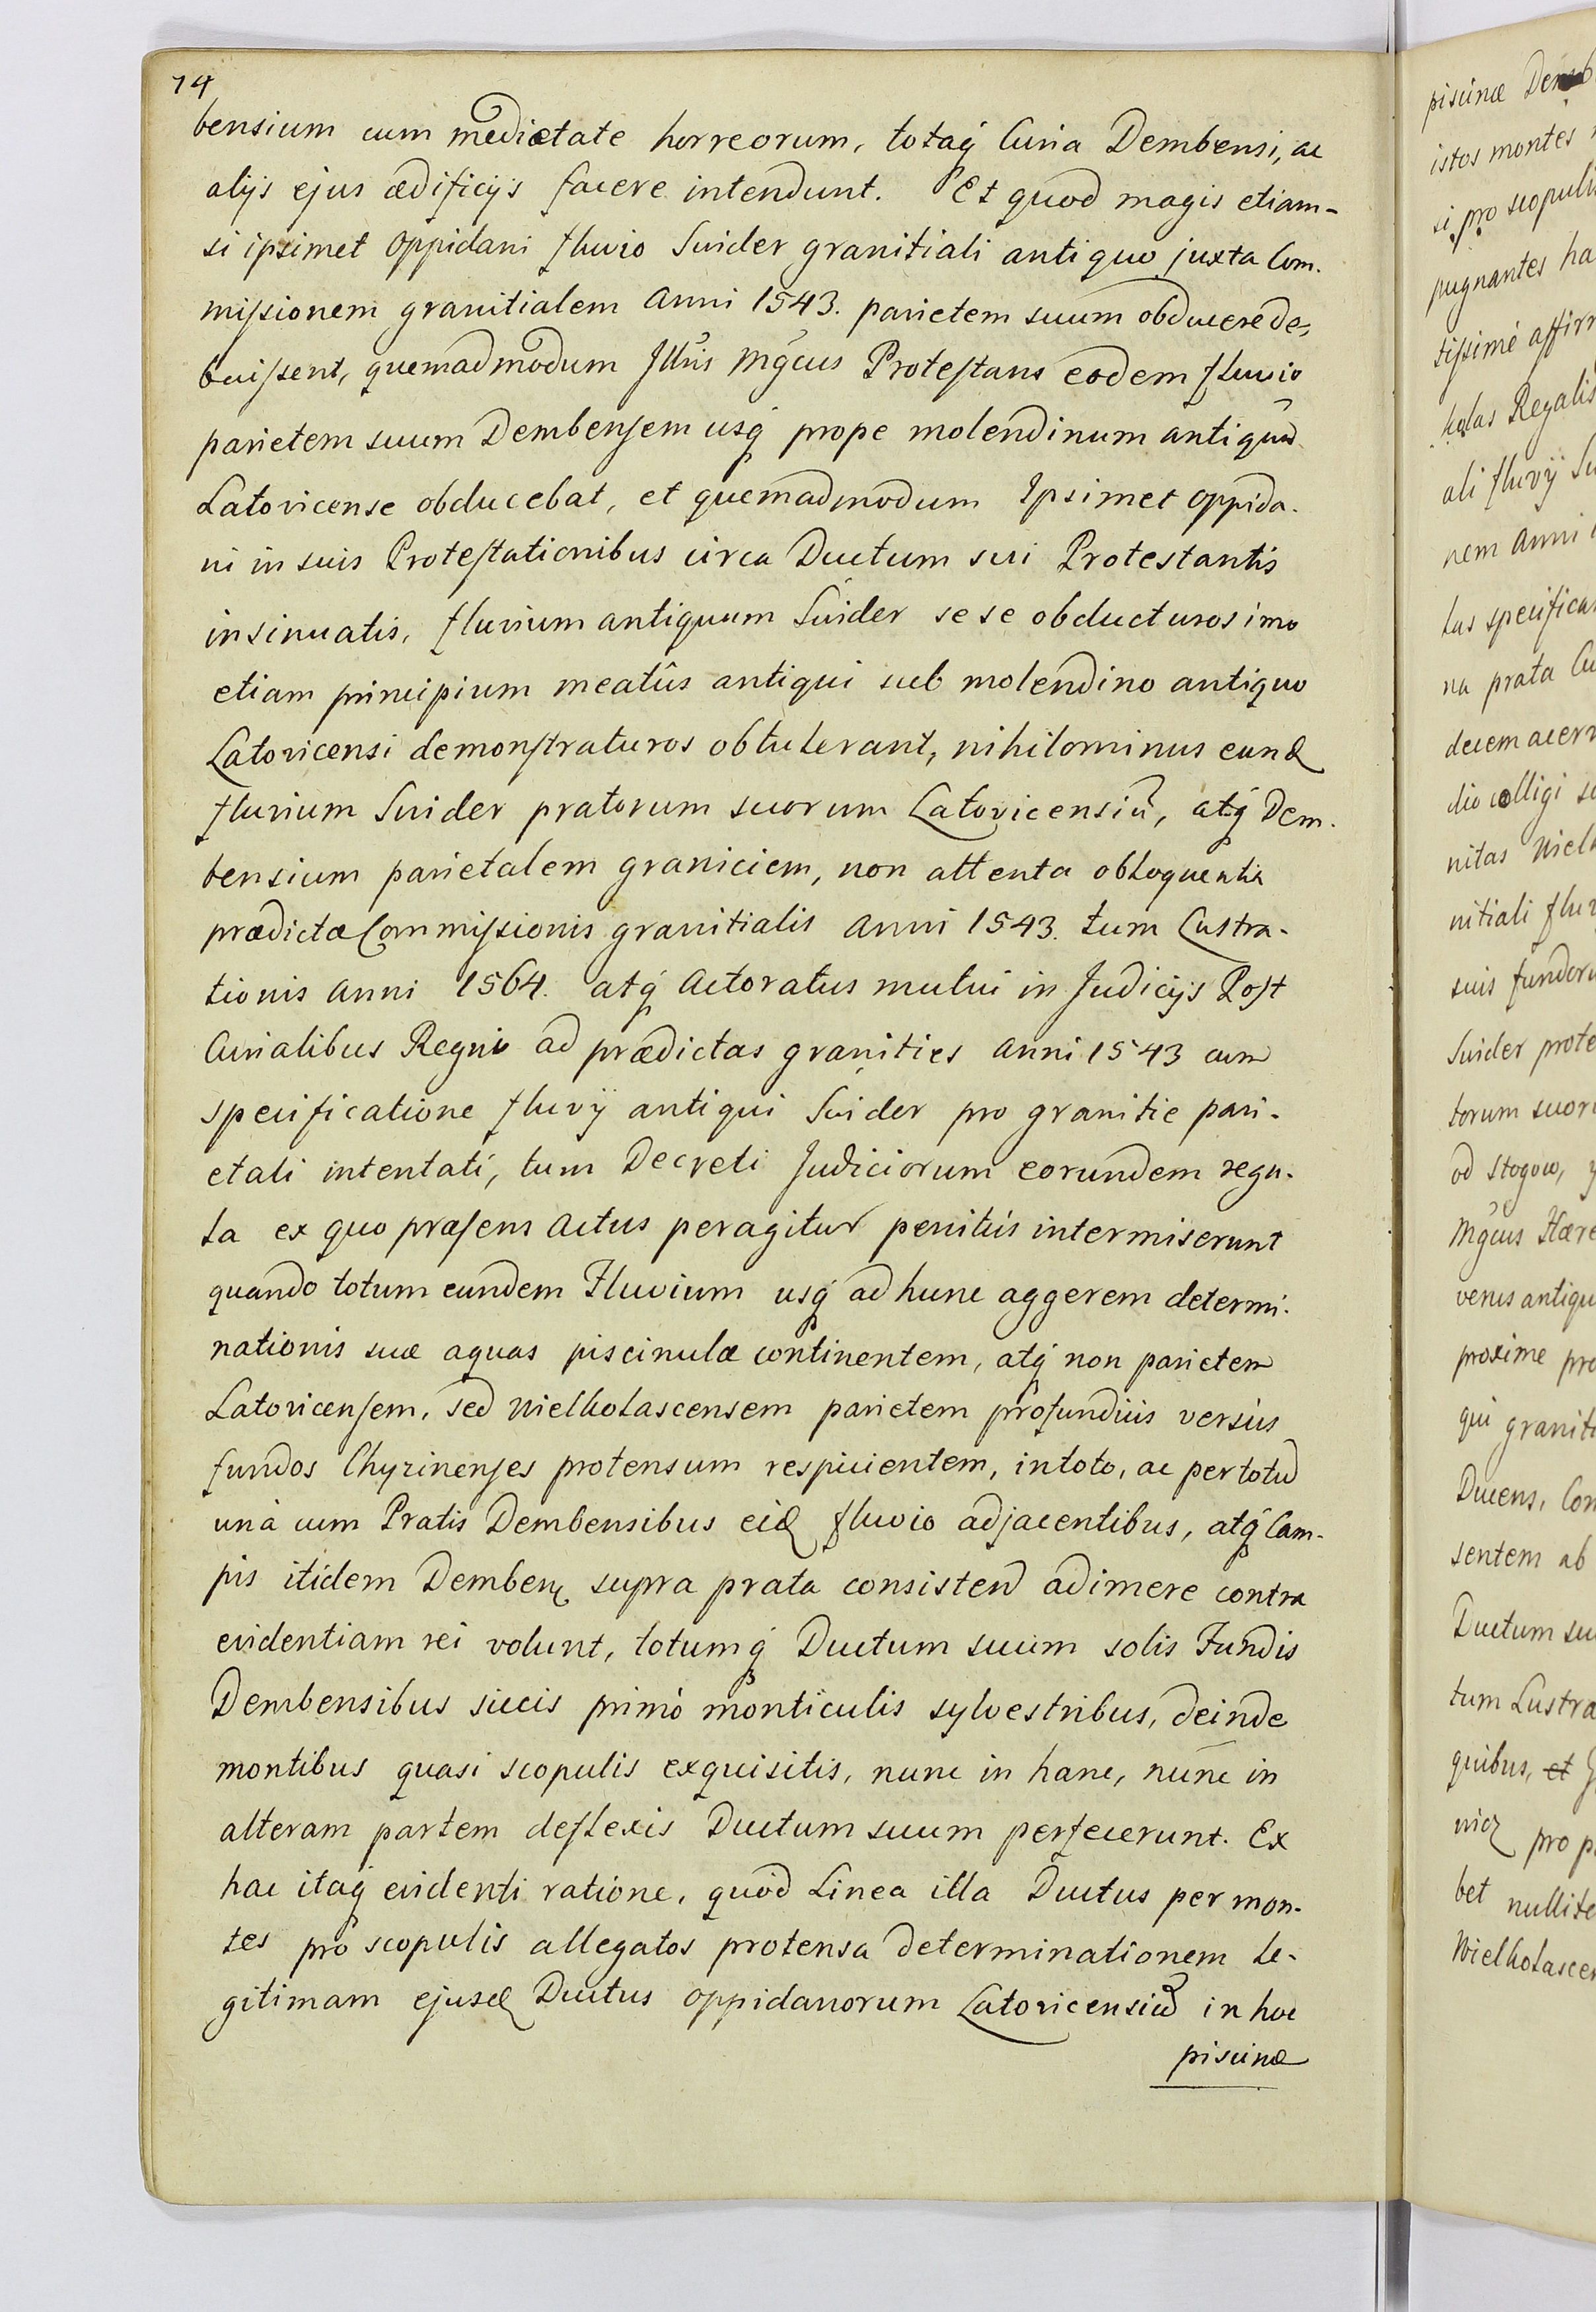 74
bensium cum medietate horreorum, totaq́ Curia Dembensi, ac
alijs ejus ædificijs facere intendunt. Et quod magis etiam-
si ipsimet Oppidani fluvio Swider granitiali antiquo juxta Com.
miſsionem granitialem Anni 1543. parietem suum obducere de,
buiſsent, quemadmodum Jllr̃is Mg̃cus Proteſtans eodem fluvio
parietem suum Dembenſem usq́ prope molendinum antiquũ
Latovicense obducebat, et quemadmodum Ipsimet Oppida.
ni in suis Proteſtationibus circa Ductum sui Protestantis
insinuatis, fluvium antiquum Swider sese obducturos imo
etiam principium meatûs antiqui sub molendino antiquo
Latovicensi demonſtraturos obtulerant, nihilominus eund
fluvium Swider pratorum suorum Latovicensiũ, atq́ Dem.
bensium parietalem graniciem, non attenta obloquentia
prædictæ Commiſsionis granitialis Anni 1543. tum Lustra-
tionis Anni 1564. atq́ Actoratus mutui in Judicijs Poſt
Curialibus Regni ad prædictas granities Anni 1543 cum
specificatione fluvÿ antiqui Swider pro granitie pari-
etali intentati, tum Decreti Judiciorum eorundem regu-
la ex quo præſens Actus peragitur penitùs intermiserunt
quando totum eundem Fluvium usq́ ad hunc aggerem determi.
nationis suæ aquas piscinulæ continentem, atq́ non parietem
Latovicenſem, sed Wielholascensem parietem profundiùs versùs
fundos Chyzinenſes protensum respicientem, intoto, ac per totũ
unà cum Pratis Dembensibus eid fluvio adjacentibus, atq́ Cam-
pis itidem Demben supra prata consistend adimere contra
evidentiam rei volunt, totumq́ Ductum suum solis Fundis
Dembensibus siccis primò monticulis sylvestribus, deinde
montibus quasi scopulis exquisitis, nunc in hanc, nunc in
alteram partem deflexis Ductum suum perfecerunt. Ex
hac itaq́ evidenti ratione, quòd Linea illa Ductus per mon-
tes pro scopulis allegatos protensa determinationem le-
gitimam ejusd Ductus Oppidanorum Latovicensiũ in hoc
piscinæ
piscinæ
istos montes
si pro scopulis
pugnantes
tiſsimè
Regalis
ali fluvÿ
nem Anni
tas
na prata
decem
dio colligi
nitas
nitiali
suis
Swider
torum
od Stogow,
Mg̃cus
verus
proxime
qui
Ducens,
sentem ab
Ductum
tum Lustra
quibus, et
pro
bet